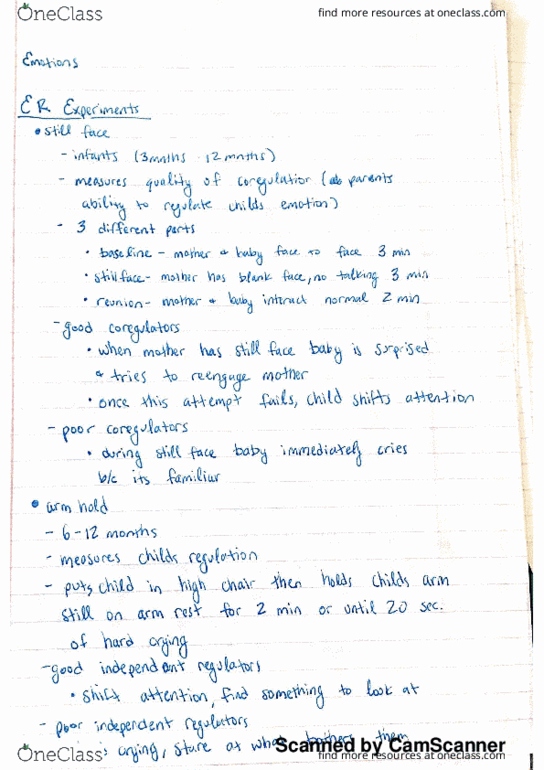 OneClass
find more resources at oneclass.com
Emotions
ER Experiments
• still face
- infants (3 mnths - 12 mnths)
- measures quality of coregulation (parents
ability to regulate childs emotion)
- 3 different parts
• baseline - mother & baby face to face 3 min
• still face - mother has blank face, no talking 3 min
• reunion - mother & baby interact normal 2 min
- good coregulators
• when mother has still face baby is surprised
& tries to reengage mother
• once this attempt fails, child shifts attention
- poor coregulators
• during still face baby immediately cries
b/c its familiar
• arm hold
- 6-12 months
- measures childs regulation
- puts child in high chair then holds childs arm
still on arm rest for 2 min or until 20 sec.
of hard crying
- good independent regulators
• shift attention, find something to look at
- poor independent regulators
• crying, stare at what bothers them
Scanned by CamScanner
OneClass
find more resources at oneclass.com